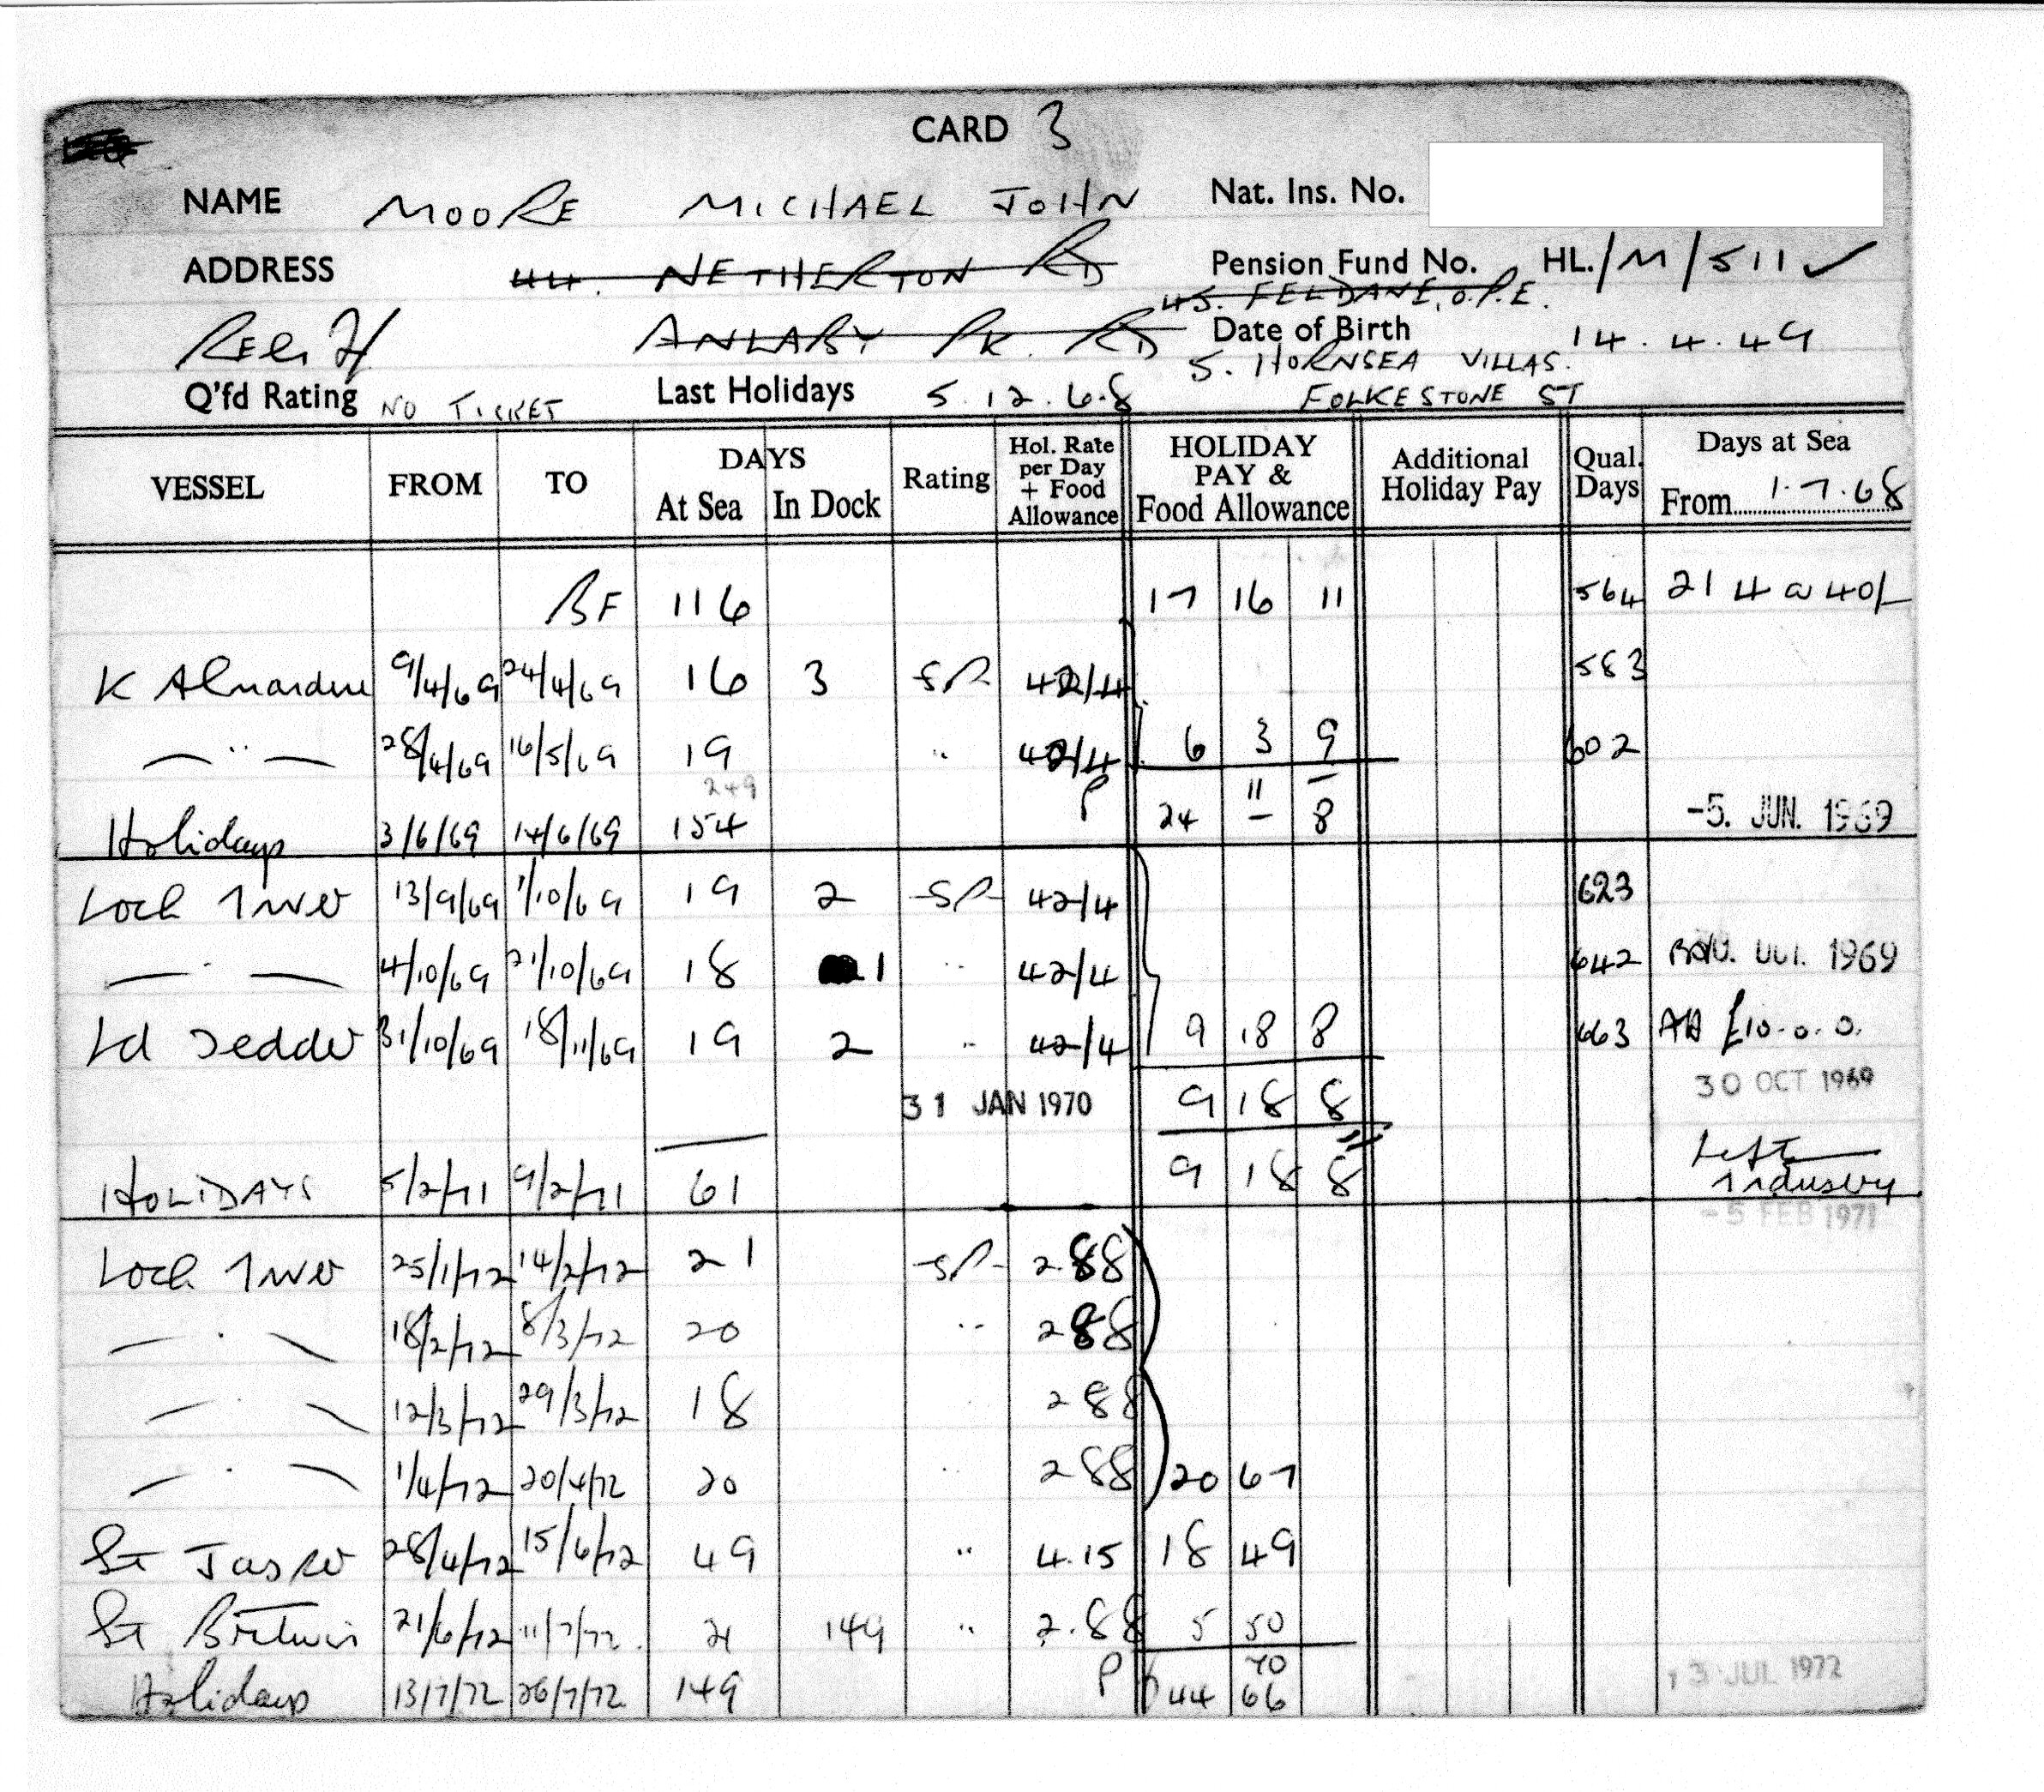 CARD 3
NAME MOORE MICHAEL JOHN Nat. Ins. No.
ADDRESS 44. NETHERTON RD Pension Fund No. HL./M/511 ✓
45. FELDANE, O.P.E.
ANLABY PK. RD Date of Birth 14.4.49
5. HORNSEA VILLAS.
Q'fd Rating NO TICKET Last Holidays 5.12.68 FOLKESTONE ST
VESSEL FROM TO DAYS At Sea In Dock Rating Hol. Rate per Day + Food Allowance HOLIDAY PAY & Food Allowance Additional Holiday Pay Qual. Days Days at Sea From 1.7.68
BF 116 17 16 11 564 214 @ 40/-
K Almandine 9/4/69 24/4/69 16 3 SP 42/4 583
— " — 28/4/69 16/5/69 19 " 42/4 6 3 9 602
249 11 –
Holidays 3/6/69 14/6/69 154 P 24 – 8 -5. JUN. 1969
Loch Inver 13/9/69 1/10/69 19 2 SP 42/4 623
— " — 4/10/69 21/10/69 18 1 " 42/4 642 1969
Ld Tedder 31/10/69 18/11/69 19 2 " 42/4 9 18 8 663 £10.0.0.
31 JAN 1970 9 18 8 30 OCT 1969
HOLIDAYS 5/2/71 9/2/71 61 9 18 8 Left Industry
-5 FEB 1971
Loch Inver 25/1/72 14/2/72 21 SP 2.88
— " — 18/2/72 8/3/72 20 " 288
— " — 12/3/72 29/3/72 18 288
— " — 1/4/72 20/4/72 20 " 288 20 67
St Jasper 28/4/72 15/6/72 49 " 4.15 18 49
St Britwin 21/6/72 11/7/72. 21 149 " 2.88 5 50
70
Holidays 13/7/72 26/7/72 149 P 44 66 13 JUL 1972